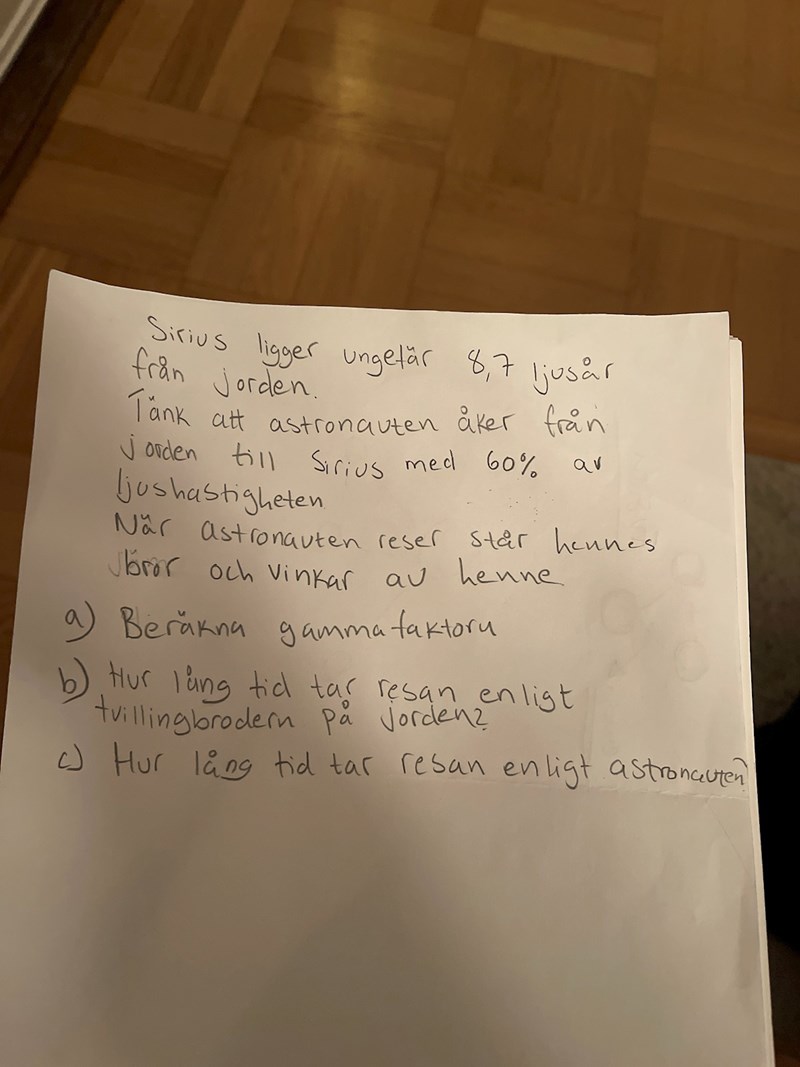 Sirius ligger ungefär 8,7 ljusår
från jorden.
Tänk att astronauten åker från
jorden till Sirius med 60% av
ljushastigheten
När astronauten reser står hennes
bror och vinkar av henne
a) Beräkna gammafaktorn
b) Hur lång tid tar resan enligt
tvillingbrodern på jorden?
c) Hur lång tid tar resan enligt astronauten?